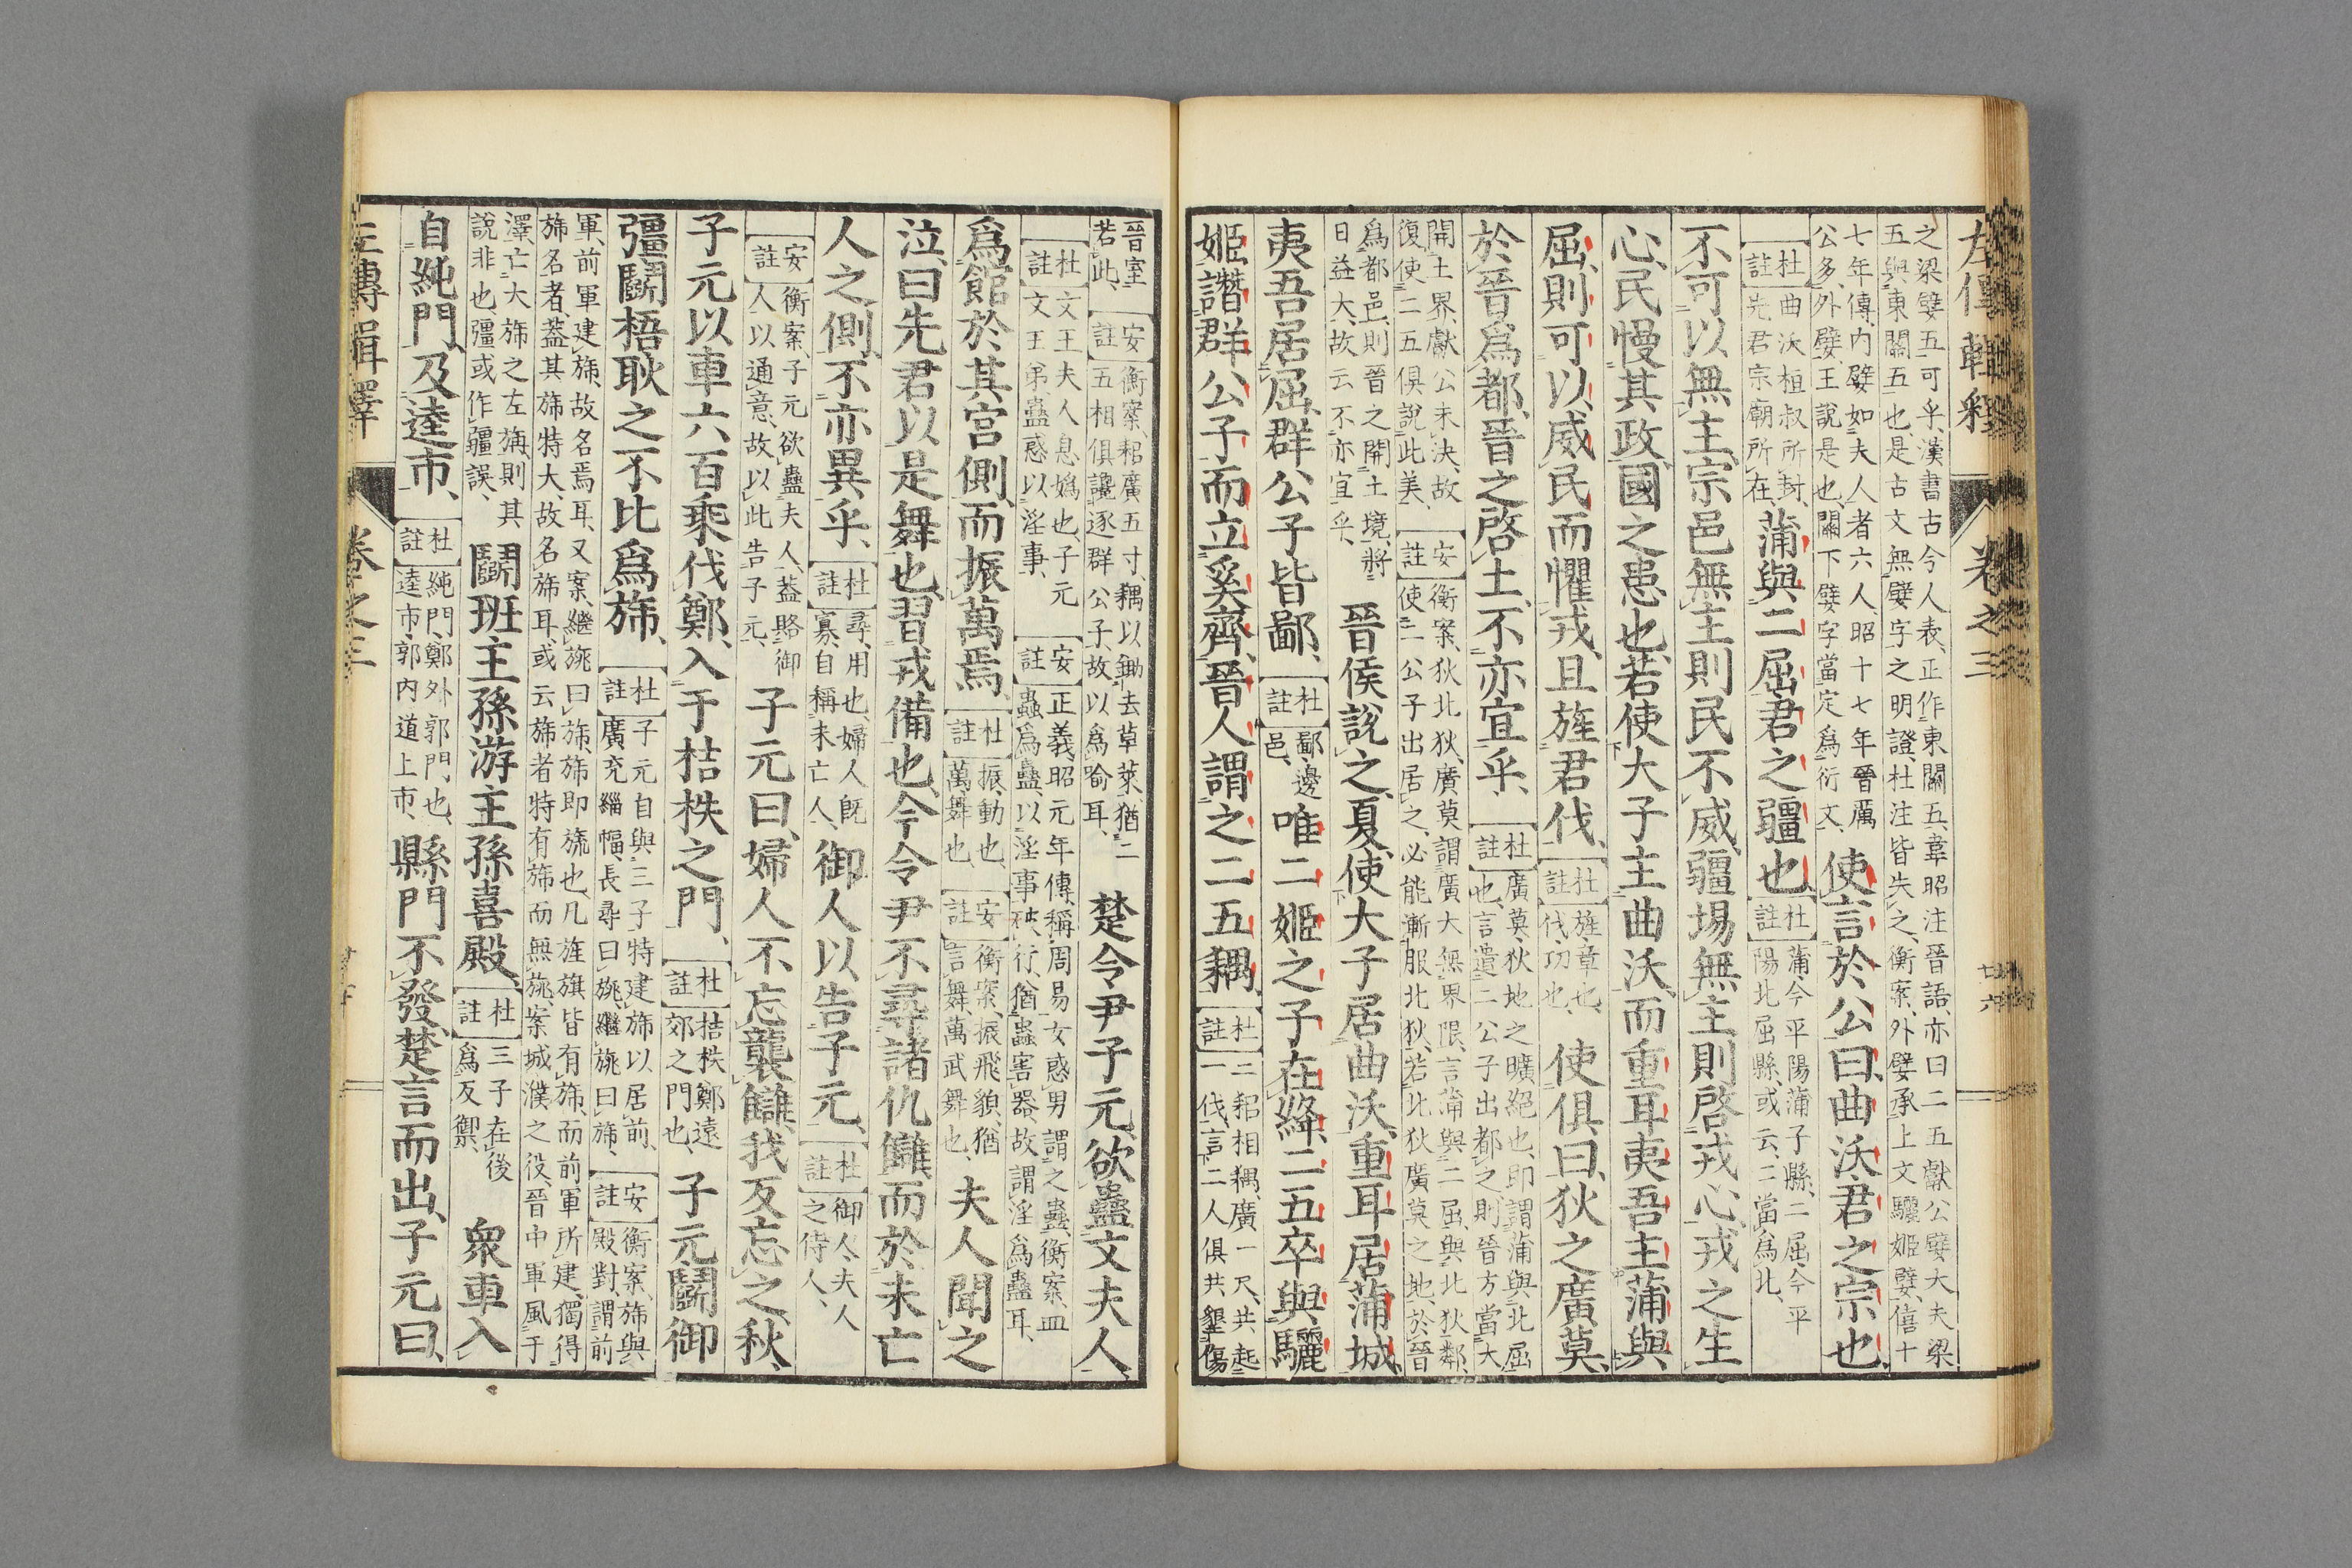 左傳輯釋 卷之三
之梁嬖五可乎、漢書古今人表、正作東關五、韋昭注晉語、亦曰二五獻公嬖大夫梁
五與東關五也、是古文無嬖字之明證、杜注皆失之、衡案、外嬖承上文驪姬嬖、僖十
七年傳、内嬖如夫人者六人、昭十七年晉厲
公多外嬖、王說是也、關下嬖字當定爲衍文、
使言於公曰、曲沃、君之宗也、
杜註 曲沃桓叔所封、
先君宗廟所在、
蒲與二屈、君之疆也、
杜註 蒲、今平陽蒲子縣、二屈、今平
陽北屈縣、或云、二當爲北、
不可以無主、宗邑無主、則民不威、疆埸無主、則啓戎心、戎之生
心、民慢其政、國之患也、若使大子主曲沃、而重耳夷吾主蒲與
屈、則可以威民而懼戎、且旌君伐、
杜註 旌、章也、
伐、功也、
使俱曰、狄之廣莫、
於晉爲都、晉之啓土、不亦宜乎、
杜註 廣莫、狄地之曠絕也、即謂蒲與北屈
也、言遣二公子出都之、則晉方當大
開土界、獻公未決、故
復使二五俱說此美、
安註 衡案、狄、北狄、廣莫、謂廣大無界限、言蒲與二屈、與北狄鄰、
使二公子出居之、必能漸服北狄、若北狄廣莫之地、於晉
爲都邑、則晉之開土境、將
日益大、故云不亦宜乎、
晉侯說之、夏、使大子居曲沃、重耳居蒲城、
夷吾居屈、群公子皆鄙、
杜註 鄙、邊
邑、
唯二姬之子在絳、二五卒與驪
姬譖群公子而立奚齊、晉人謂之二五耦、
杜註 二耜相耦、廣一尺、共起
一伐、言二人俱共墾傷
晉室
若此、
安註 衡案、耜廣五寸、耦以鋤去草萊、猶二
五相俱讒逐群公子、故以爲喻耳、
楚令尹子元、欲蠱文夫人、
杜註 文王夫人、息嬀也、子元
文王弟、蠱惑以淫事、
安註 正義、昭元年傳、稱周易女惑男謂之蠱、衡案、皿
蟲爲蠱、以淫事行、猶蟲害器、故謂淫爲蠱耳、
爲館於其宮側、而振萬焉、
杜註 振、動也、
萬、舞也、
安註 衡案、振、飛貌、猶
言舞、萬、武舞也、
夫人聞之
泣曰、先君以是舞也、習戎備也、今令尹不尋諸仇讎、而於未亡
人之側、不亦異乎、
杜註 尋、用也、婦人既
寡、自稱未亡人、
御人以告子元、
杜註 御人、夫人
之侍人、
安註 衡案、子元欲蠱夫人、蓋賂御
人以通意、故以此告子元、
子元曰、婦人不忘襲讎、我反忘之、秋、
子元以車六百乘伐鄭、入于桔柣之門、
杜註 桔柣、鄭遠
郊之門也、
子元鬭御
彊鬭梧耿之不比爲旆、
杜註 子元自與三子特建旆以居前、
廣充緇幅、長尋曰旐、繼旐曰旆、
安註 衡案、旆與
殿對、謂前
軍、前軍建旆、故名焉耳、又案、繼旐曰旆、旆即旒也、凡旌旗皆有旆、而前軍所建、獨得
旆名者、蓋其旆特大、故名旆耳、或云旆者特有旆而無旐、案城濮之役、晉中軍風于
澤、亡大旆之左旃、則其
說非也、彊或作疆誤、
鬭班王孫游王孫喜殿、
杜註 三子在後
爲反禦、
衆車入
自純門、及逵市、
杜註 純門、鄭外郭門也、
逵市、郭内道上市、
縣門不發、楚言而出、子元曰、
左傳輯釋 卷之三